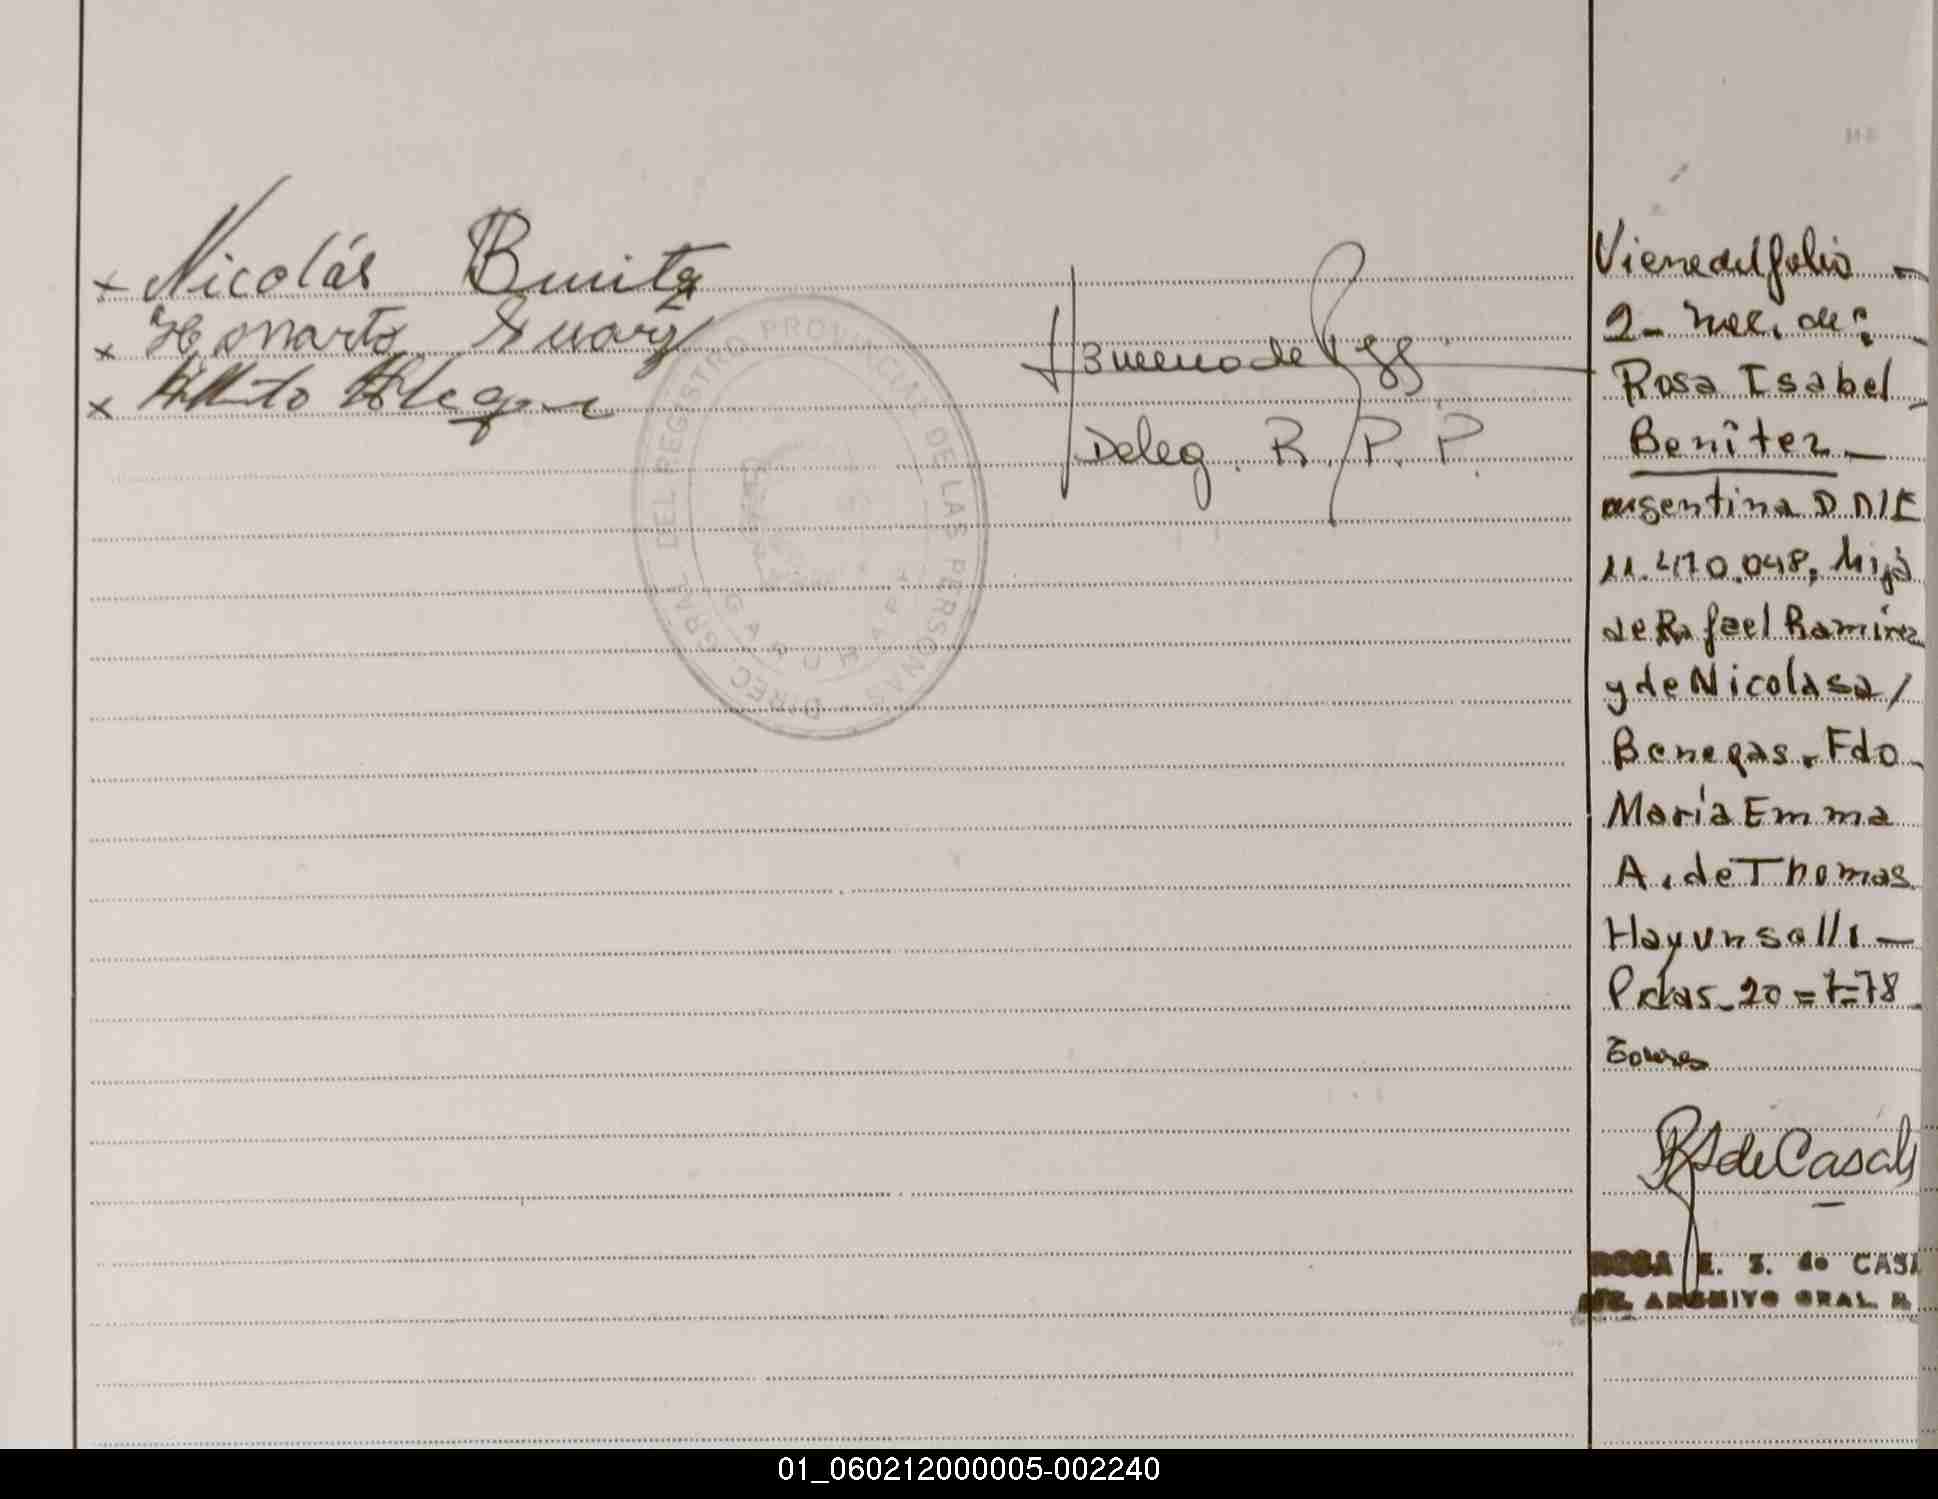 x Nicolás Benitez
x
x Alberto
de
Deleg. R. P. P.
DIREC. GRAL. DEL REGISTRO PROVINCIAL DE LAS PERSONAS
GARUHAPE
Viene del folio -
2- rec. de:
Rosa Isabel -
Benitez -
argentina D N I F
11.410.048, hija
de Rafael Ramirez
y de Nicolasa /
Benegas. Fdo -
María Emma
A. de Thomas
Hay un sello -
Pdas - 20 = 7 = 78 -
de Casals
ROSA E. S. de CASA
ARCHIVO GRAL. R.
01_060212000005-002240